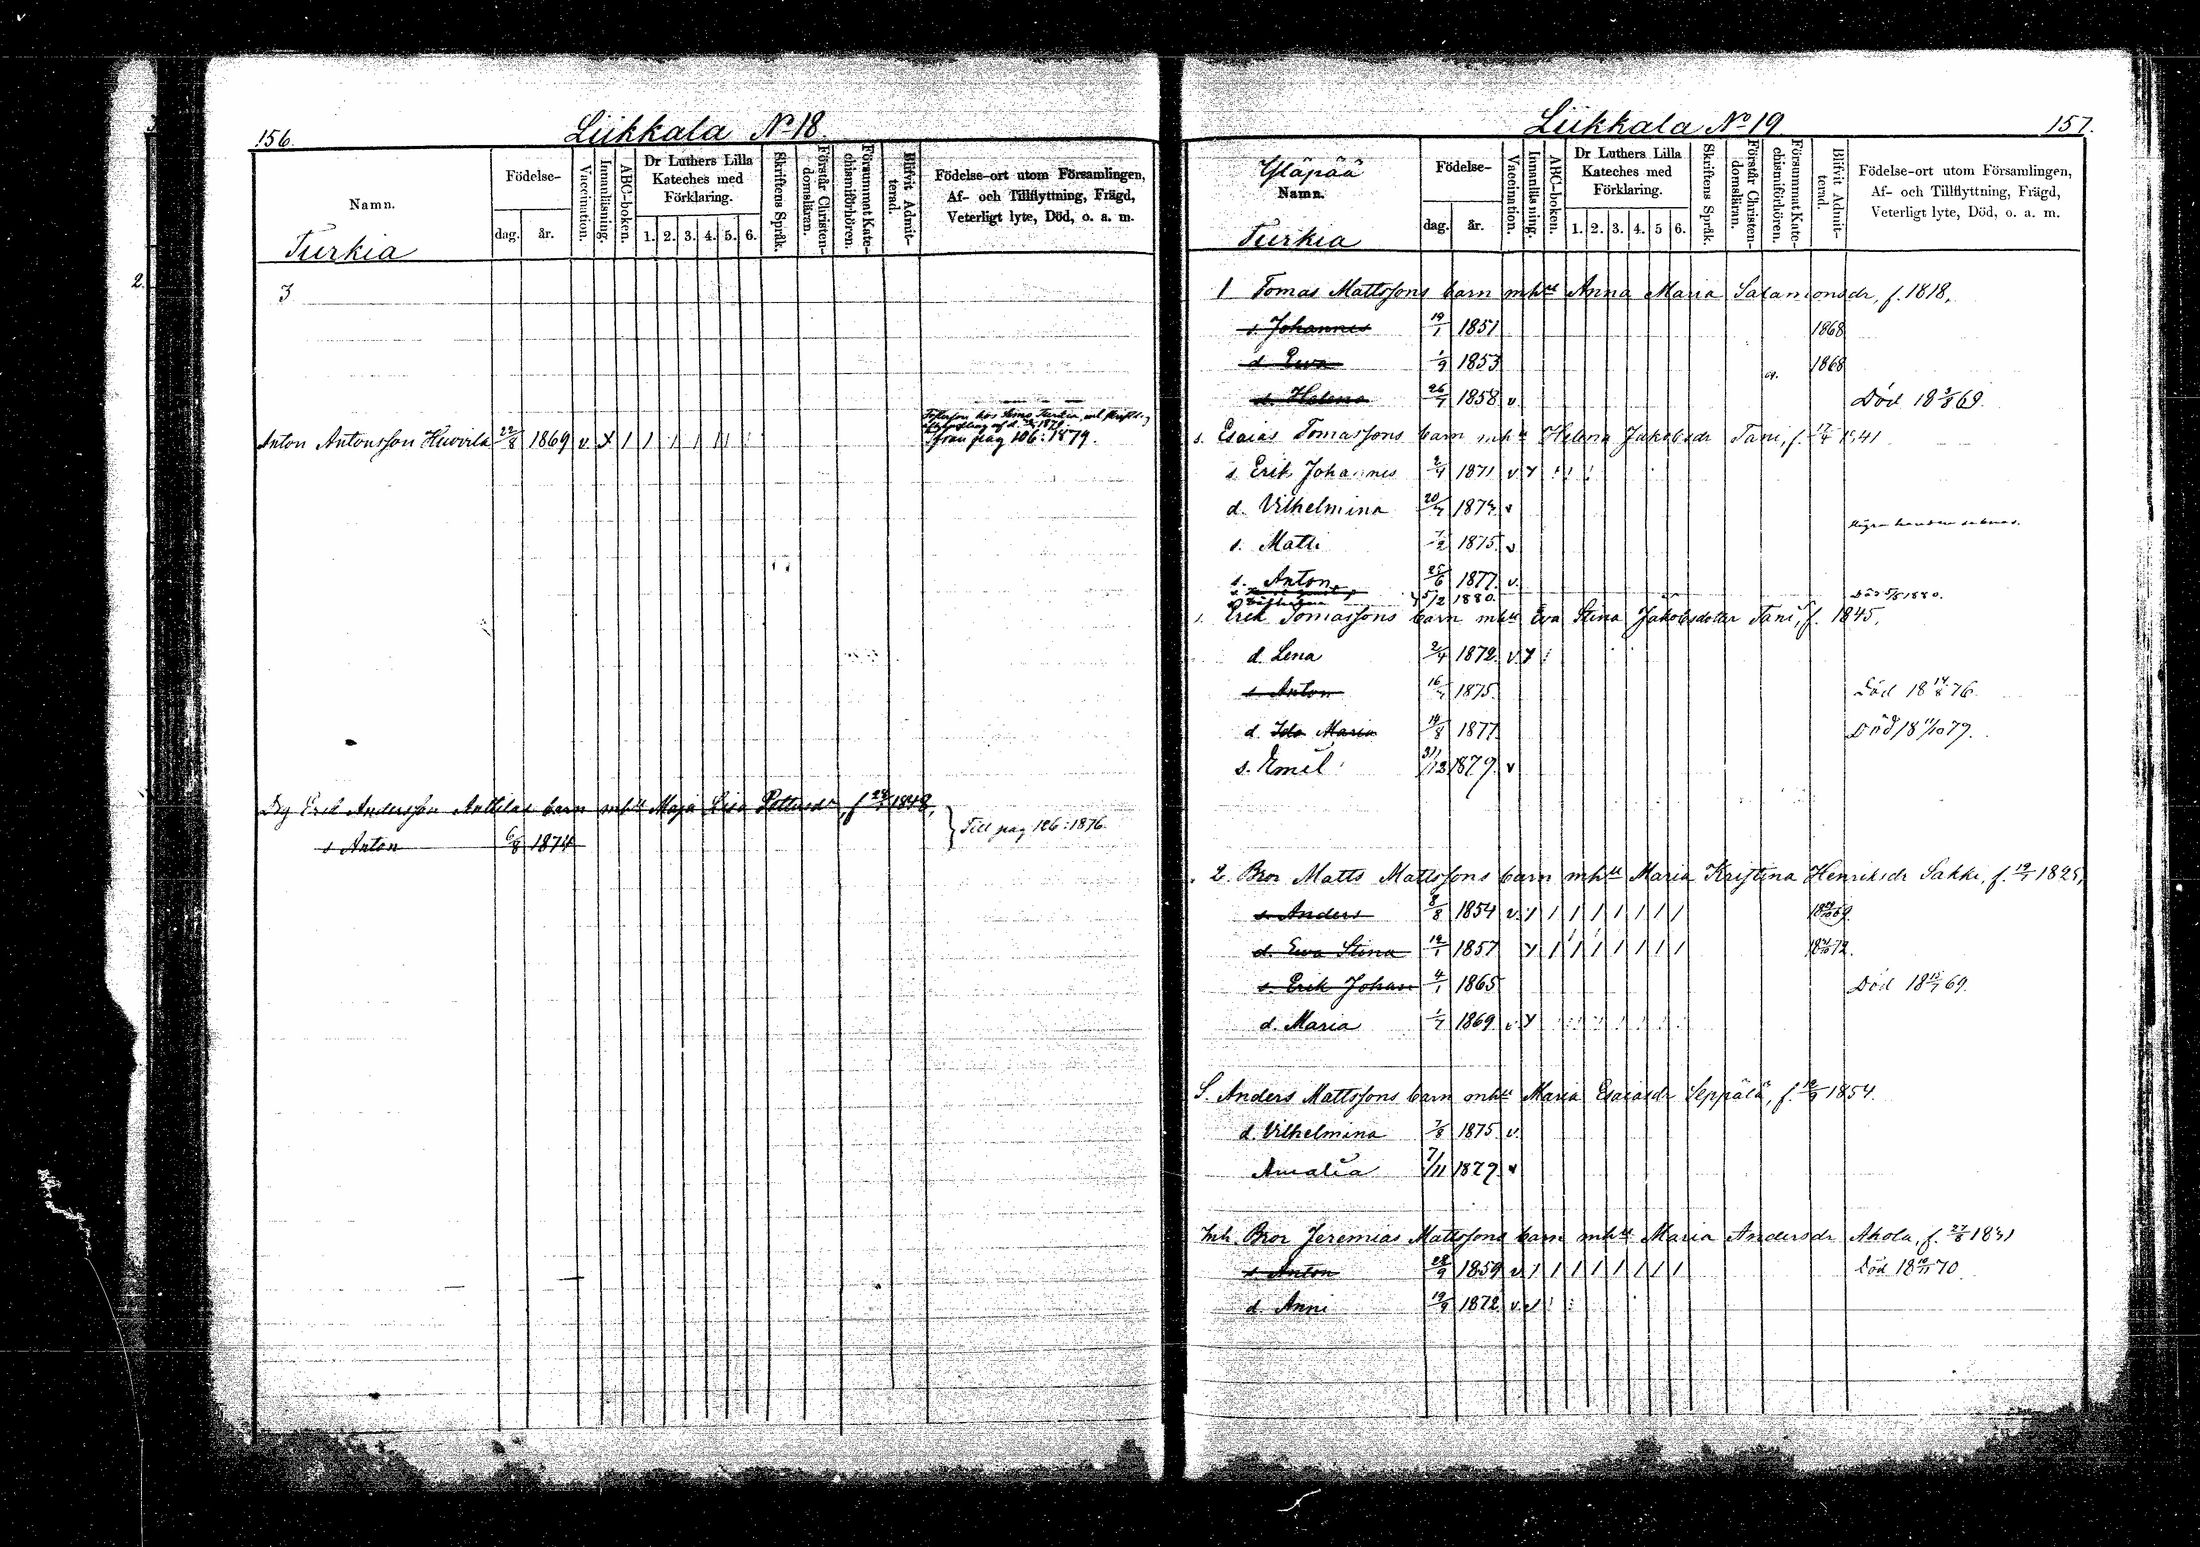 156.
Liikkala No 18.
Namn.
Födelse-
dag.
år.
Vaccination.
Innanläsning.
ABC-boken.
Dr Luthers Lilla
Kateches med
Förklaring.
1. 2. 3. 4. 5. 6.
Skriftens Språk.
Förstår Christen-
domsläran.
Försummat Kate-
chismiförhören.
Blifvit Admit-
terad.
Födelse-ort utom Församlingen,
Af- och Tillflyttning, Frägd,
Veterligt lyte, Död, o. a. m.
Turkia
3
från pag 106: 1879.
Anton Antonsson Huovila 22/8 1869 v
Dg Erik Andersson Anttilas barn mhu Maja Lisa Pettersdr, f 1848,
s Anton 6/8 1874
Till pag 126: 1876.
Liikkala No 19
157.
Yläpää
Namn.
Turkia
Födelse-
dag.
år.
Vaccination.
Innanläsning.
ABC-boken.
Dr Luthers Lilla
Kateches med
Förklaring.
1. 2. 3. 4. 5 6.
Skriftens Språk.
Förstår Christen-
domsläran.
Försummat Kate-
chismiförhören.
Blifvit Admit-
terad.
Födelse-ort utom Församlingen,
Af- och Tillflyttning, Frägd,
Veterligt lyte, Död, o. a. m.
1 Tomas Mattssons barn mhu Anna Maria Salamonsdr, f. 1818,
s. Johannes 19/1 1851 1868
d Ewa 1/9 1853 1868
d. Helena 26/7 1858 v. Död 18 3/8 69.
s. Esaias Tomassons barn mhu Helena Jakobsdr Tani, f. 1841
s. Erik Johannes 2/4 1871 v
d. Vilhelmina 1874 v
s. Matti 1/2 1875 v
s. Anton 25/6 1877. v.
5/2 1880. Död 1880.
s. Erik Tomassons barn mhu Eva Stina Jakobsdotter Tani, f. 1845.
d. Lena 2/4 1872 v
s. Anton 1875. Död 18 14/8 76.
d. Ida Maria 14/8 1877 Död 18 11/10 79.
s. Emil 31/12 1879. v
2. Bror Matts Mattssons barn mhu Maria Kristina Henriksdr Sakki, f.
s. Anders 8/8 1854 v
d. Ewa Stina 1857
s. Erik Johan 4/1 1865 Död 69.
d. Maria 1/7 1869 v
S. Anders Mattssons barn mhu Maria Esaiasdr Seppälä, f. 1854.
d. Vilhelmina 7/8 1875 v.
Amalia 7/11 1879. v
Inh. Bror Jeremias Mattssons barn mhu Maria Andersdr Ahola, f.
s Anton 28/9 1859 v Död 70.
d. Anni 19/9 1872 v